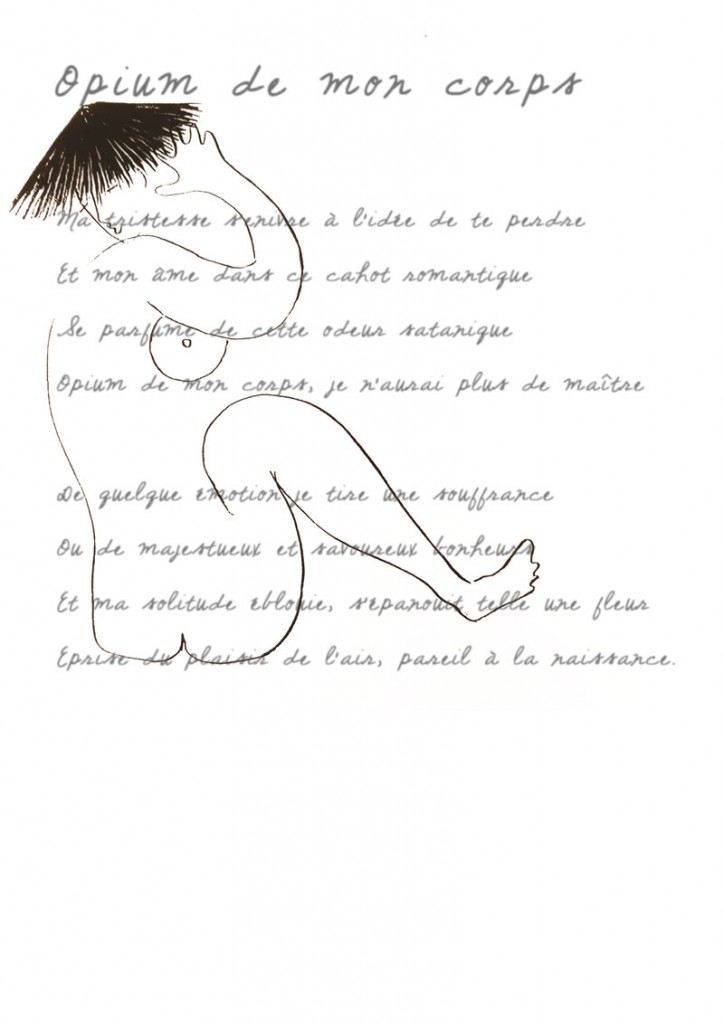 Opium de mon corps
Ma tristesse s'enivre à l'idée de te perdre
Et mon âme dans ce cahot romantique
Se parfume de cette odeur satanique
Opium de mon corps, je n'aurai plus de maître
De quelque émotion je tire une souffrance
Ou de majestueux et savoureux bonheurs
Et ma solitude éblouie, s'épanouit telle une fleur
Eprise du plaisir de l'air, pareil à la naissance.